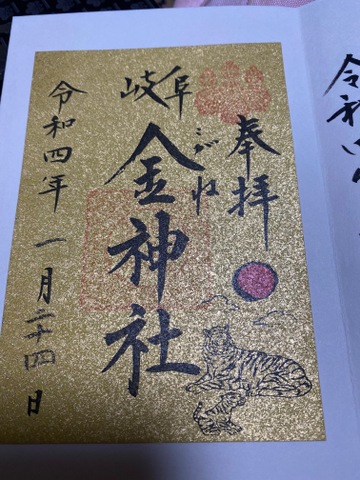 奉拝
岐阜
こがね
金神社
令和四年 一月二十四日
令和